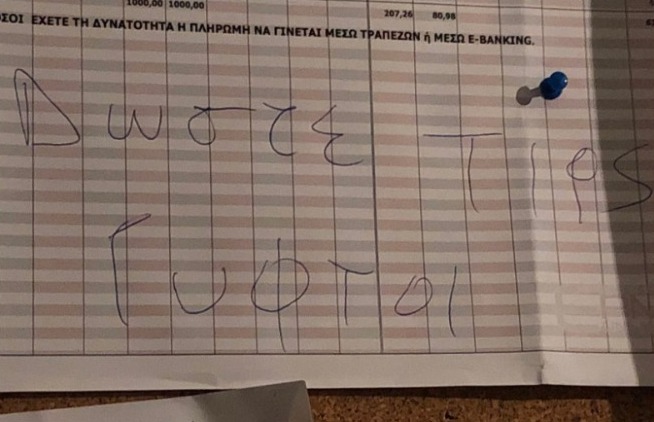 1000,00 1000,00
207,26 80,98
ΣΟΙ ΕΧΕΤΕ ΤΗ ΔΥΝΑΤΟΤΗΤΑ Η ΠΛΗΡΩΜΗ ΝΑ ΓΙΝΕΤΑΙ ΜΕΣΩ ΤΡΑΠΕΖΩΝ ή ΜΕΣΩ E-BANKING.
Δωστε TIPS
Γυφτοι